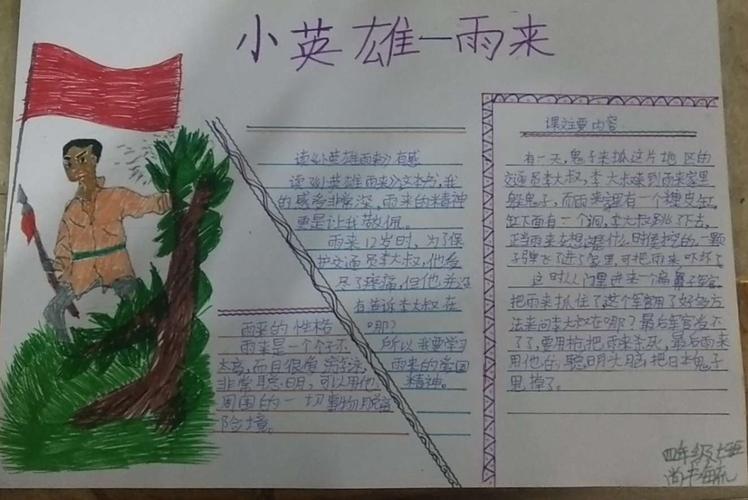 小英雄—雨来
读《小英雄雨来》有感
读《小英雄雨来》这本书,我
的感受非常深,雨来的精神
更是让我敬佩。
雨来12岁时,为了保
护交通员李大叔,他受
尽了疼痛,但他并没
有告诉李大叔在
哪?
所以我要学习
雨来的爱国
精神。
雨来的性格
雨来是一个个子不
太高,而且很瘦
非常聪明,可以用他
周围的一切事物脱离
险境。
课文主要内容
有一天,鬼子来抓这片地区的
交通员李大叔,李大叔来到雨来家里
躲鬼子,而雨来家里有一个
缸下面有一个洞,李大叔到了下去,
正当雨来去想
子弹飞了进了屋里,可把雨来吓坏了
这时从门里进来一个扁鼻子军官
把雨来抓住了这个军官用了好多方
法来问李大叔在哪?最后军官发怒
了,要用枪把雨来杀死,最后雨来
用他的聪明大脑把日本鬼子
甩掉了。
四年级